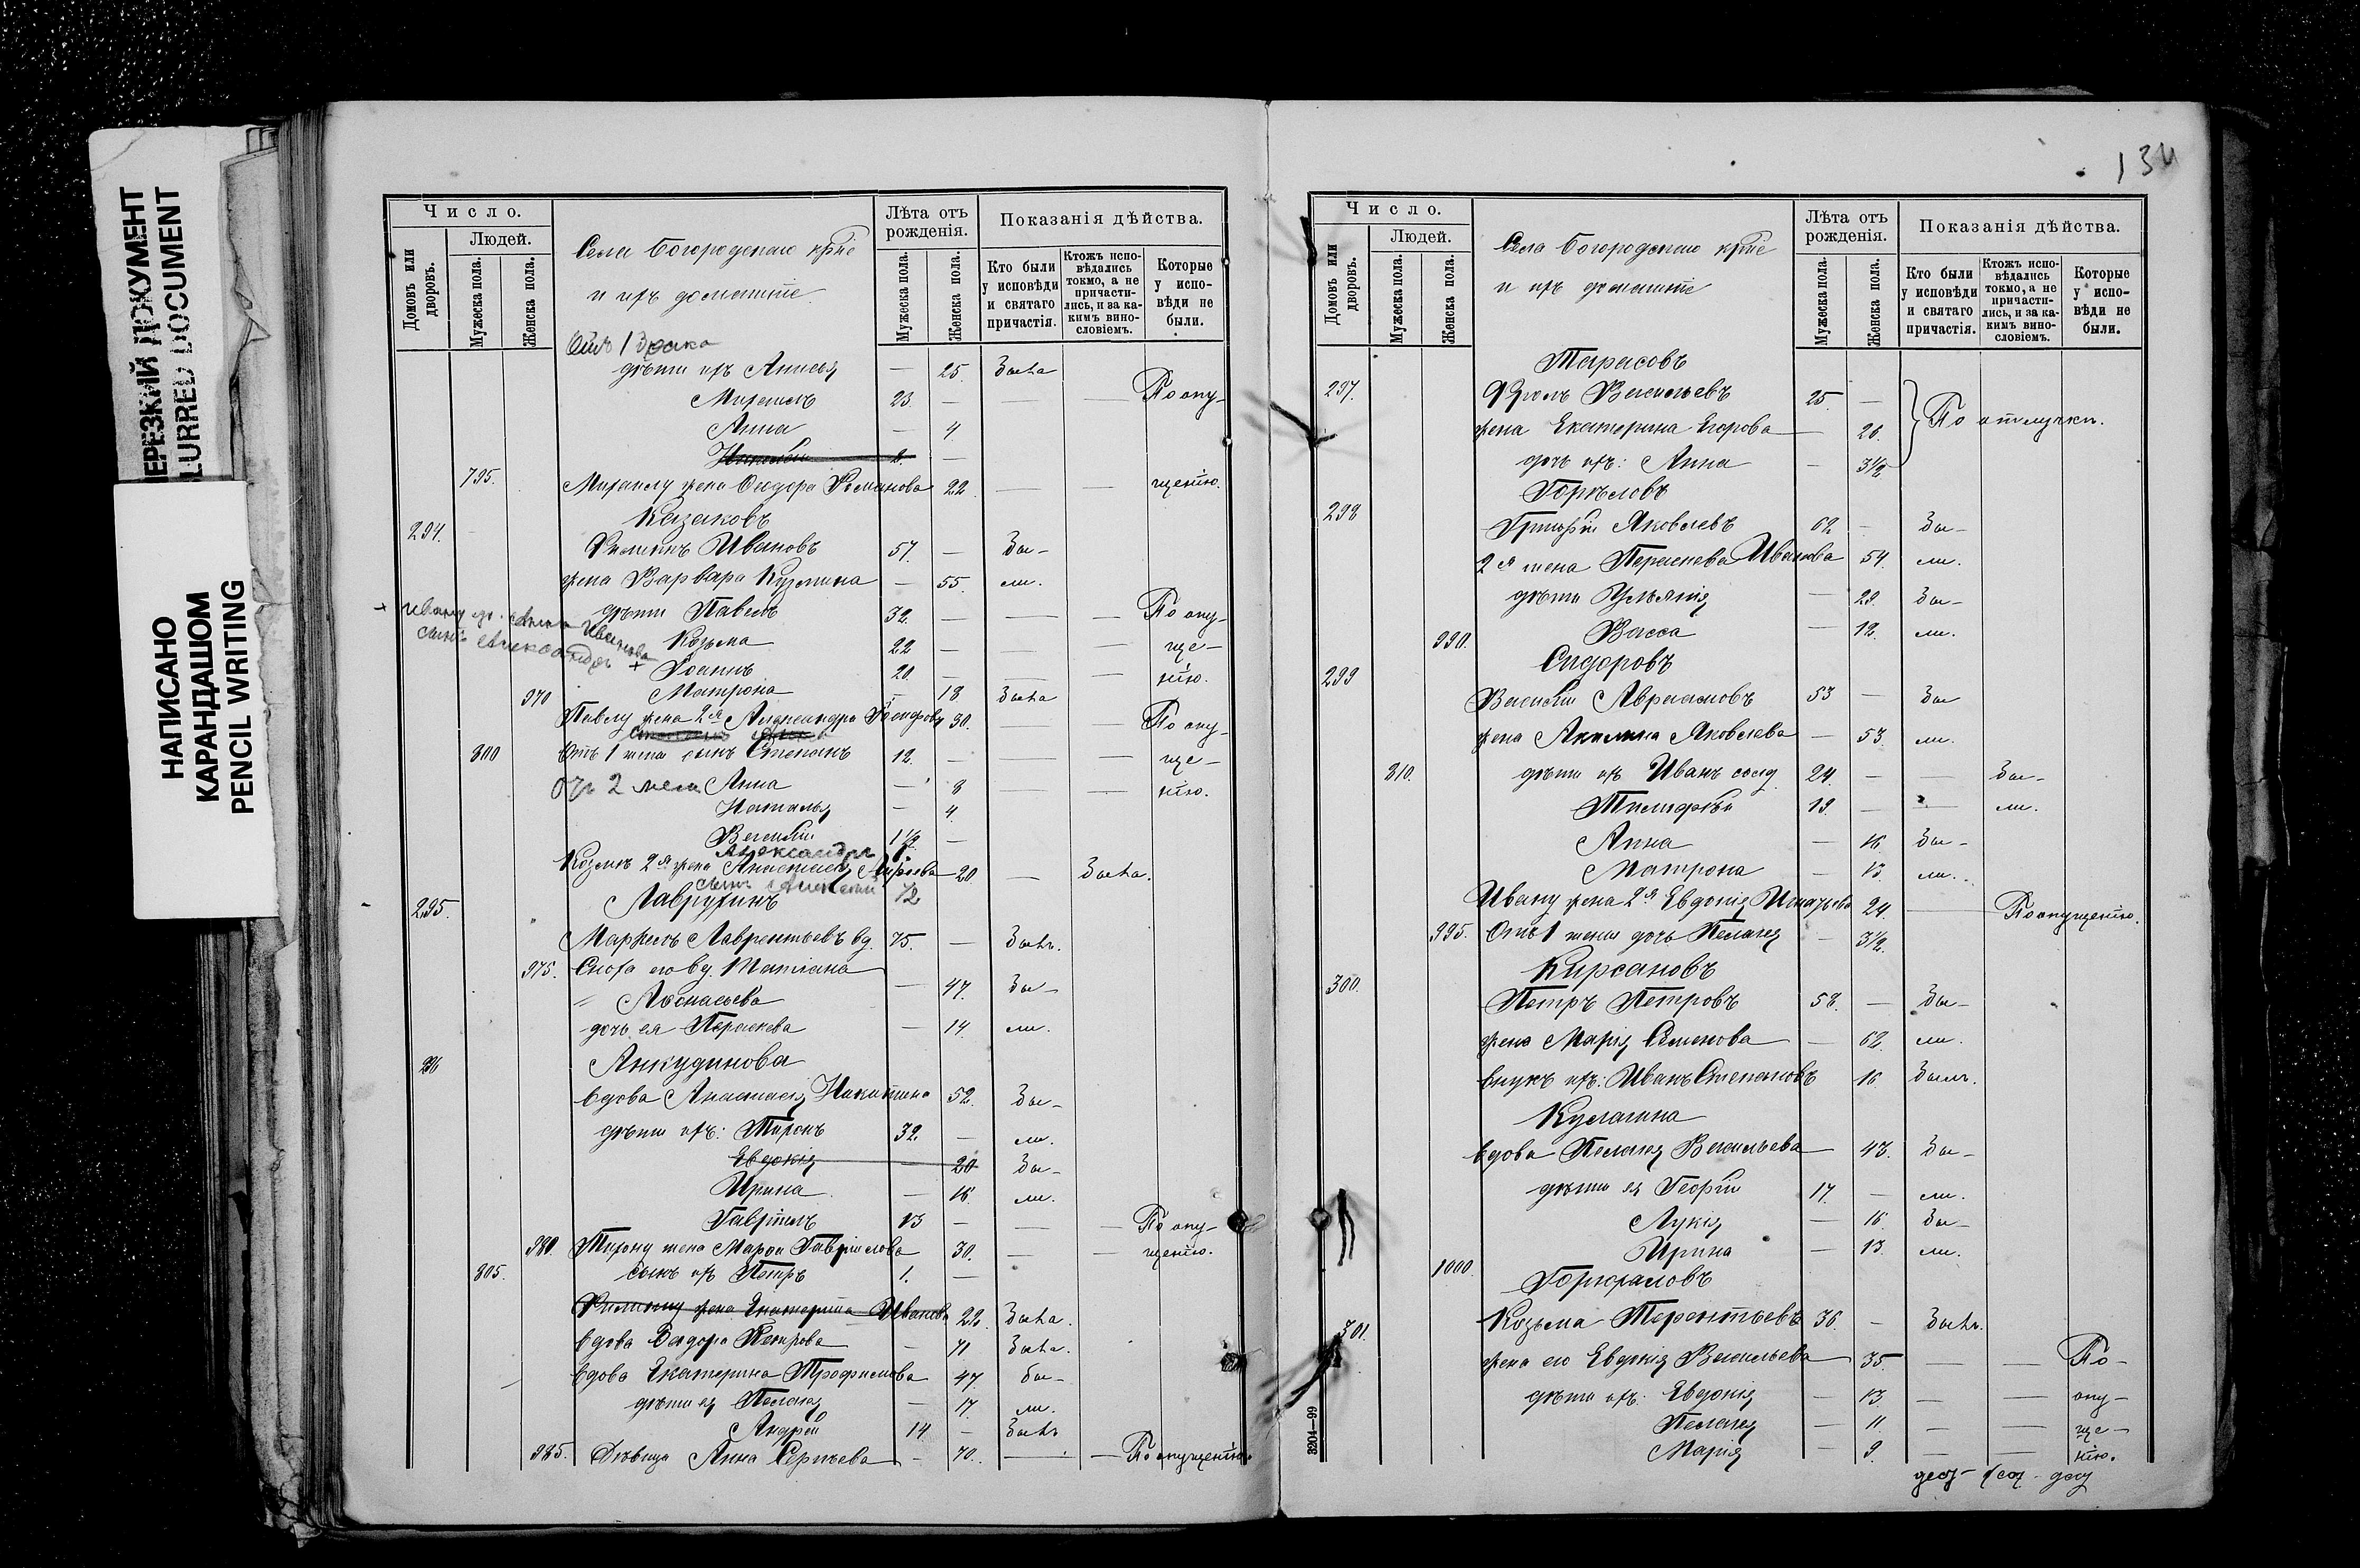 НЕРЕЗКИЙ ДОКУМЕНТ
BLURRED DOCUMENT
НАПИСАНО
КАРАНДАШОМ
PENCIL WRITING
Число.
Домовъ или дворовъ.
Людей.
Мужеска пола.
Женска пола.
Села Богородскаго крт̃е
и ихъ домашніе
Лѣта отъ рожденія.
Мужеска пола.
Женска пола.
Показанія дѣйства.
Кто были у исповѣди и святаго причастія.
Ктожъ исповѣдались токмо, а не причастились, и за какимъ винословіемъ.
Которые у исповѣди не были.
Отъ 1 брака
дѣти ихъ Анисья — 25. Была
Михаилъ 23. — — — По опу-
Анна — 4.
795. Михаилу жена Феодора Романова 22. — — щенію.
Казаковъ
294. Филиппъ Ивановъ 57. — Бы-
жена Варвара Кузмина — 55. ли.
дѣти Павелъ 32. — — — По опу-
Козьма 22 — — ще-
Іоаннъ 20. — — — нію.
970 Матрона — 18. Была
Павлу жена 2я Александра 30. — — По опу-
800 Отъ 1 жены сынъ Степанъ 12. — — — ще-
Отъ 2 жены Анна — 8 — — нію.
Наталья — 4.
Василій 1½ —
Александръ
Козмѣ 2я жена Анастасія 20. — Была.
сынъ Алексѣй ½
295. Лаврухинъ
Маркелъ Лаврентьевъ вд. 75. — Былъ.
975. Сноха его вд. Татіана
Афонасьева — 47. Бы-
дочь ея Параскева — 14. ли.
296 Анкудинова
вдова Анастасія Никитина 52. Бы-
дѣти ихъ: Тихонъ 32. — ли.
Евдокія — 20 Бы-
Ирина — 16. ли.
Гавріилъ 13 — — — По опу-
980. Тихону жена Марѳа Гавріилова 30. — — щенію.
805. сынъ ихъ Петръ 1. —
Филиппу жена Екатерина Иванова 22. Была.
вдова Феодора Петрова — 71 Была.
вдова Екатерина Трофимова 47. бы-
дѣти ея Пелагея — 17. ли.
Андрей 14 — Былъ
985. Дѣвица Анна Сергѣева — 70. — — По опущенію.
134
Число.
Домовъ или дворовъ.
Людей.
Мужеска пола.
Женска пола.
Села Богородскаго крт̃е
и ихъ домашніе
Лѣта отъ рожденія.
Мужеска пола.
Женска пола.
Показанія дѣйства.
Кто были у исповѣди и святаго причастія.
Ктожъ исповѣдались токмо, а не причастились, и за какимъ винословіемъ.
Которые у исповѣди не были.
Тарасовъ
297. Фролъ Васильевъ 25. —
жена Екатерина Егорова — 26. По отлучкѣ.
дочь ихъ: Анна — 3½
Горѣловъ
298 Григорій Яковлевъ 62 — Бы-
2я жена Параскева Иванова 54. ли.
дѣти Ульянія — 29. Бы-
990. Васса — 12. ли.
Сидоровъ
299 Василій Авраамовъ 53 — Бы
жена Акилина Яковлева — 53. ли.
810. дѣти ихъ Иванъ солд. 24. — — Бы-
Тимофей 19. — — ли.
Анна — 16. Бы-
Матрона — 13. ли.
Ивану жена 2я Евдокія Игнатьева 24. — По опущенію.
995. Отъ 1 жены дочь Пелагея — 3½.
Кирсановъ
300. Петръ Петровъ 58. — Бы-
жена Марія Семенова — 62. ли.
внукъ ихъ: Иванъ Степановъ 16 Былъ.
Кулагина
вдова Пелагея Васильева — 43. Бы-
дѣти ея Георгій 17. — ли.
Лукія — 16. Бы-
1000. Ирина — 13. ли.
301. Козьма Терентьевъ 36. — Былъ.
жена его Евдокія Васильева 35 — — По-
дѣти ихъ: Евдокія — 13. — — опу-
Пелагея — 11. — — ще-
Марія — 9. — — нію.
3204—99